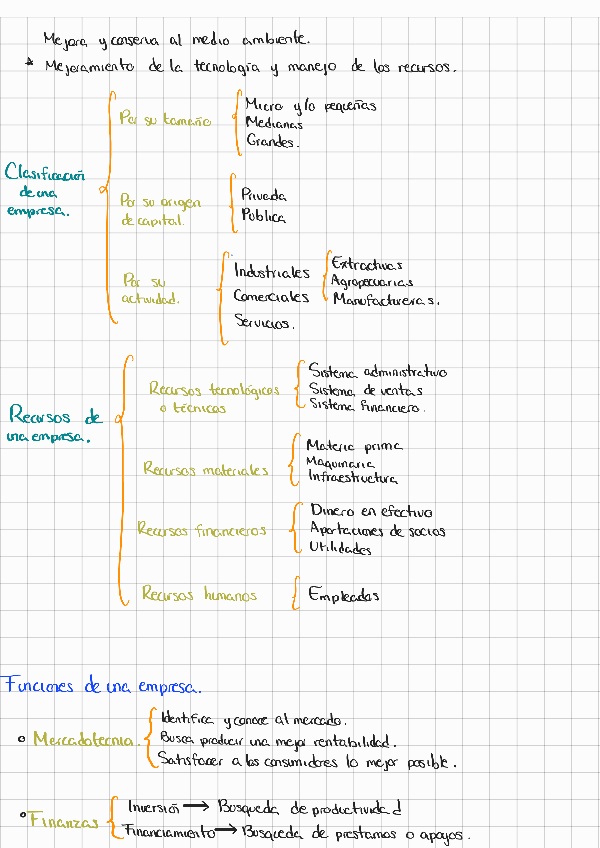 Mejora y conserva al medio ambiente.
* Mejoramiento de la tecnología y manejo de los recursos.
Clasificación
de una
empresa.
Por su tamaño
Micro y/o pequeñas
Medianas
Grandes.
Por su origen
de capital.
Privada
Pública
Por su
actividad.
Industriales
Comerciales
Servicios.
Extractivas
Agropecuarias
Manufactureras.
Recursos de
una empresa.
Recursos tecnológicos
o técnicos
Sistema administrativo
Sistema de ventas
Sistema financiero.
Recursos materiales
Materia prima
Maquinaria
Infraestructura
Recursos financieros
Dinero en efectivo
Aportaciones de socios
Utilidades
Recursos humanos
Empleadas
Funciones de una empresa.
o Mercadotecnia.
Identifica y conoce al mercado.
Busca producir una mejor rentabilidad.
Satisfacer a los consumidores lo mejor posible.
o Finanzas
Inversión → Busqueda de productividad
Financiamiento → Busqueda de prestamos o apoyos.